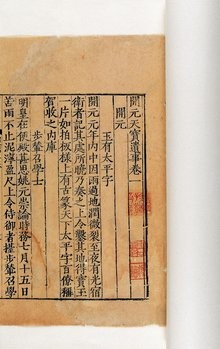 開元天寶遺事卷
開元
玉有太平字
開元元年內中因雨過地潤微裂至夜有光宿
衛者記其處所曉乃奏之上令鑿其地得寶玉
一片如拍板樣上有古篆天下太平字百僚稱
賀收之內庫
步輦召學士
明皇在便殿甚思姚元崇論時務七月十五日
苦雨不止泥濘盈尺上令侍御者擡步輦召學